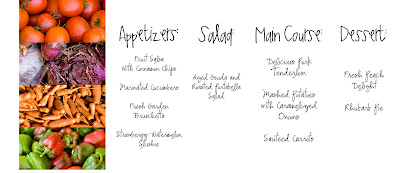 Appetizers:
Fruit Salsa
with Cinnamon Chips
Marinated Cucumbers
Fresh Garden
Bruschetta
Strawberry-Watermelon
Slushie
Salad:
Aged Gouda and
Roasted Portabella
Salad
Main Course:
Delicious Pork
Tenderloin
Mashed Potatoes
with Caramelized
Onions
Sauteed Carrots
Dessert:
Fresh Peach
Delight
Rhubarb Pie